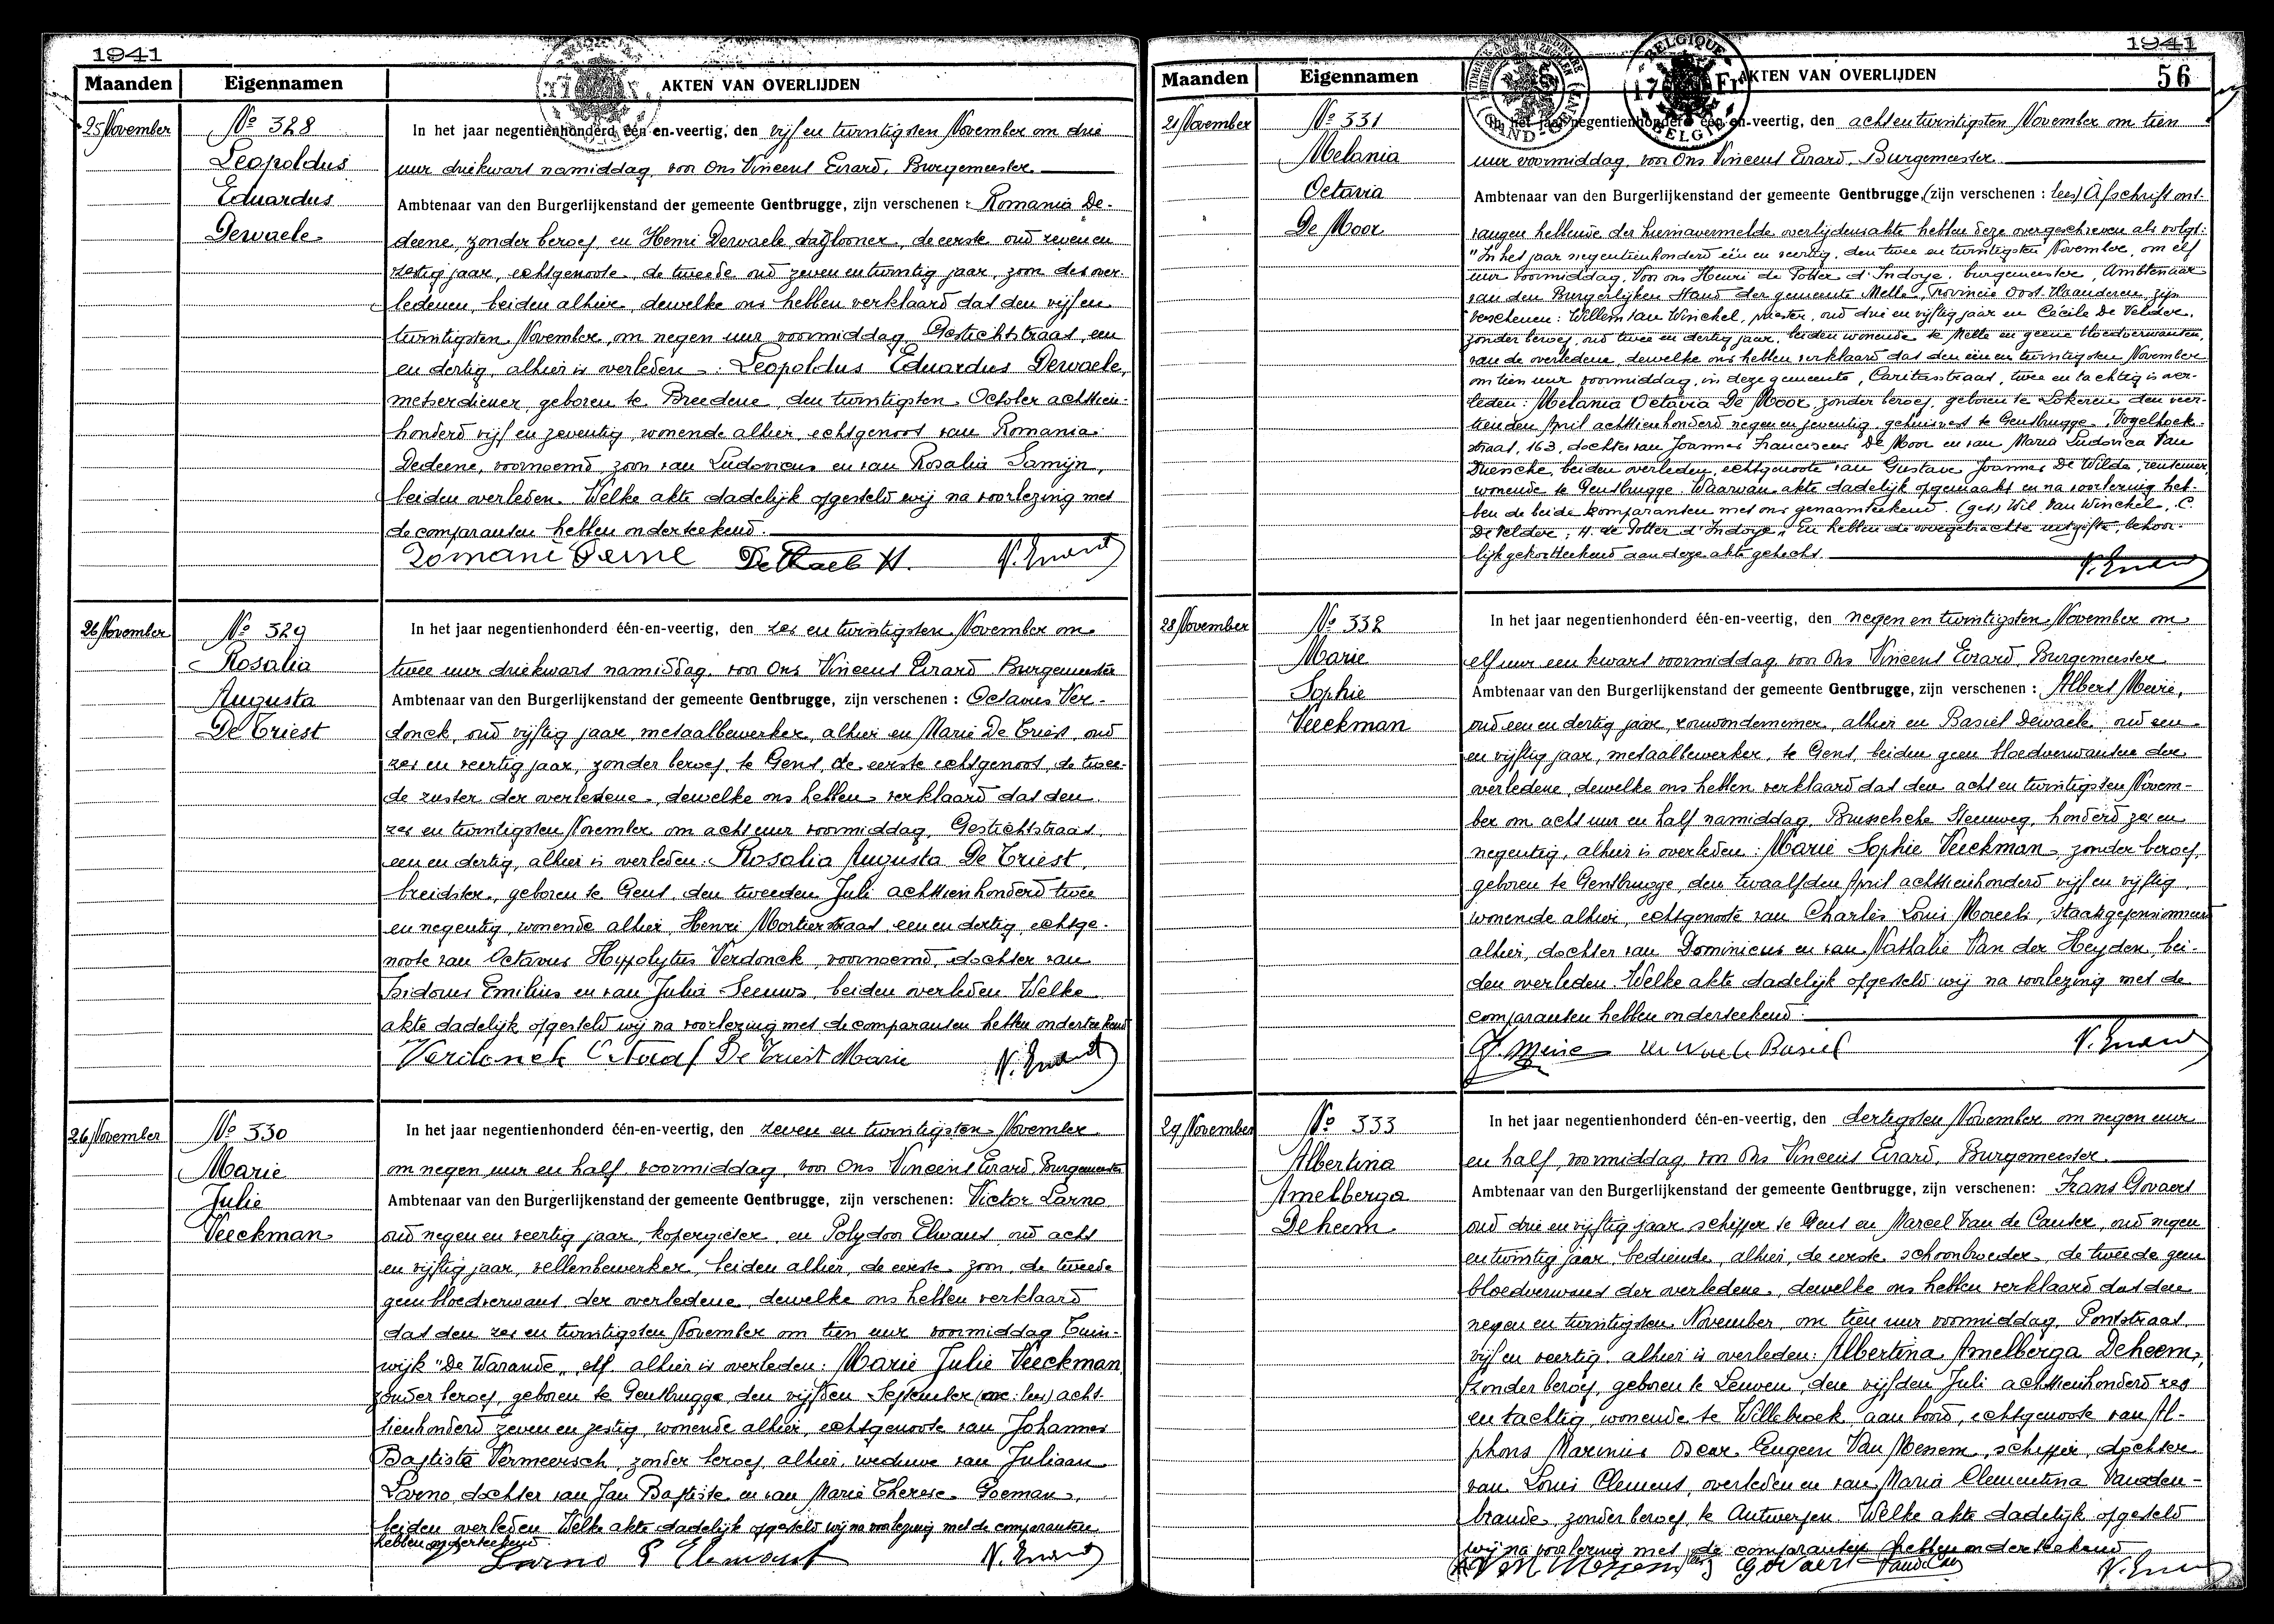 1941
Maanden Eigennamen AKTEN VAN OVERLIJDEN
25 November
No 328
Leopoldus
Eduardus
Dewaele
In het jaar negentienhonderd één en-veertig, den vijf en twintigsten November om drie
uur driekwart namiddag, voor Ons Vincent Evrard, Burgemeester
Ambtenaar van den Burgerlijkenstand der gemeente Gentbrugge, zijn verschenen : Romania De-
deene, zonder beroep en Henri Dewaele, daglooner, de eerste oud zeven en
zestig jaar, echtgenoote, de tweede oud zeven en twintig jaar, zoon des over-
ledenen, beiden alhier, dewelke ons hebben verklaard dat den vijf en
twintigsten November, om negen uur voormiddag, Gestichtstraat, een
en dertig, alhier is overleden : Leopoldus Eduardus Dewaele,
metserdiener, geboren te Breedene, den twintigsten October achttien-
honderd vijf en zeventig, wonende alhier, echtgenoot van Romania
Dedeene, voornoemd, zoon van Ludovicus en van Rosalia Samijn,
beiden overleden. Welke akte dadelijk opgesteld wij na voorlezing met
de comparanten hebben onderteekend.
De Waele H. V. Evrard
26 November
No 329
Rosalia
Augusta
De Triest
In het jaar negentienhonderd één-en-veertig, den zes en twintigsten November om
twee uur driekwart namiddag, voor Ons Vincent Evrard Burgemeester
Ambtenaar van den Burgerlijkenstand der gemeente Gentbrugge, zijn verschenen : Octavus Ver-
donck, oud vijftig jaar, metaalbewerker, alhier en Marie De Triest, oud
zes en veertig jaar, zonder beroep, te Gent, de eerste echtgenoot, de twee-
de zuster der overledene, dewelke ons hebben verklaard dat den
zes en twintigsten November om acht uur voormiddag, Gestichtstraat,
een en dertig, alhier is overleden : Rosalia Augusta De Triest,
breidster, geboren te Gent, den tweeden Juli achttienhonderd twee
en negentig, wonende alhier, Henri Mortierstraat, een en dertig, echtge-
noote van Octavus Hyppolytus Verdonck, voornoemd, dochter van
Isidorus Emilius en van Julia Leeuws, beiden overleden. Welke
akte dadelijk opgesteld wij na voorlezing met de comparanten hebben onderteekend
Verdonck Octaaf De Triest Marie V. Evrard
26 November
No 330
Marie
Julie
Veeckman
In het jaar negentienhonderd één-en-veertig, den zeven en twintigsten November
om negen uur en half voormiddag, voor Ons Vincent Evrard, Burgemeester
Ambtenaar van den Burgerlijkenstand der gemeente Gentbrugge, zijn verschenen: Victor Larno
oud negen en veertig jaar, kopergieter, en Polydoor oud acht
en vijftig jaar, vellenbewerker, beiden alhier, de eerste zoon, de tweede
geen bloedverwant der overledene, dewelke ons hebben verklaard
dat den zes en twintigsten November om tien uur voormiddag Tuin-
wijk "De Warande", elf, alhier is overleden: Marie Julie Veeckman
zonder beroep, geboren te Gentbrugge, den vijfden September ( : lees) acht-
tienhonderd zeven en zestig, wonende alhier, echtgenoote van Johannes
Baptiste Vermeersch, zonder beroep, alhier, weduwe van Juliaan
Larno, dochter van Jan Baptiste en van Marie Therese Goeman,
beiden overleden. Welke akte dadelijk opgesteld wij na voorlezing met de comparanten
hebben onderteekend.
Larno P V. Evrard
1941
56
Maanden Eigennamen AKTEN VAN OVERLIJDEN
BELGIQUE 17 Fr BELGIE
21 November
No 331
Melania
Octavia
De Moor
In het jaar negentienhonderd één en-veertig, den acht en twintigsten November om tien
uur voormiddag, voor Ons Vincent Evrard, Burgemeester
Ambtenaar van den Burgerlijkenstand der gemeente Gentbrugge, (zijn verschenen : lees) Afschrift ont-
vangen hebbende der hiernavermelde overlijdensakte hebben deze overgeschreven als volgt:
"In het jaar negentienhonderd één en veertig, den twee en twintigsten November, om elf
uur voormiddag, Voor ons Henri de Potter d'Indoye, burgemeester, Ambtenaar
van den Burgerlijken Stand der gemeente Melle, Provincie Oost-Vlaanderen, zijn
verschenen: Willem Van Winckel, priester, oud drie en vijftig jaar en Cécile De Velder,
zonder beroep, oud twee en dertig jaar, beiden wonende te Melle en geene bloedverwanten
van de overledene, dewelke ons hebben verklaard dat den één en twintigsten November
om tien uur voormiddag, in deze gemeente, Caritasstraat, twee en tachtig is over-
leden: Melania Octavia De Moor, zonder beroep, geboren te Lokeren den veer-
tienden April achttienhonderd negen en zeventig, gehuisvest te Gentbrugge, Vogelhoek-
straat, 163, dochter van Joannes Franciscus De Moor en van Maria Ludovica Van
Driensche, beiden overleden, echtgenoote van Gustave Joannes De Wilde, rentenier,
wonende te Gentbrugge. Waarvan akte dadelijk opgemaakt en na voorlezing heb-
ben de beide komparanten met ons genaamteekend. (get) Wil. Van Winckel, C.
De Velder, H. de Potter d'Indoye." En hebben de overgebrachte uitgifte, behoor-
lijk gekortteekend aan deze akte gehecht.
V. Evrard
28 November
No 332
Marie
Sophie
Veeckman
In het jaar negentienhonderd één-en-veertig, den negen en twintigsten November om
elf uur een kwart voormiddag, voor Ons Vincent Evrard, Burgemeester
Ambtenaar van den Burgerlijkenstand der gemeente Gentbrugge, zijn verschenen : Albert Meirie,
oud een en dertig jaar, rouwondernemer, alhier en Basiel Dewaele, oud een
en vijftig jaar, metaalbewerker, te Gent, beiden geen bloedverwanten der
overledene, dewelke ons hebben verklaard dat den acht en twintigsten Novem-
ber om acht uur en half namiddag, Brusselsche Steenweg, honderd zes en
negentig, alhier is overleden : Marie Sophie Veeckman, zonder beroep,
geboren te Gentbrugge, den twaalfden April achttienhonderd vijf en vijftig,
wonende alhier, echtgenoote van Charles Louis Moreels, staatsgepensionneerd
alhier, dochter van Dominicus en van Nathalie Van der Heyden, bei-
den overleden. Welke akte dadelijk opgesteld wij na voorlezing met de
comparanten hebben onderteekend.
De Waele Basiel V. Evrard
29 November
No 333
Albertina
Amelberga
Deheem
In het jaar negentienhonderd één-en-veertig, den dertigsten November om negen uur
en half, voormiddag, voor Ons Vincent Evrard, Burgemeester.
Ambtenaar van den Burgerlijkenstand der gemeente Gentbrugge, zijn verschenen: Frans Govaert
oud drie en vijftig jaar, schipper te Gent en Marcel Van de Cauter, oud negen
en twintig jaar, bediende, alhier, de eerste schoonbroeder, de tweede geen
bloedverwant der overledene, dewelke ons hebben verklaard dat den
negen en twintigsten November, om tien uur voormiddag, Pontstraat,
vijf en veertig, alhier is overleden: Albertina Amelberga Deheem,
zonder beroep, geboren te Leuven, den vijfden Juli achttienhonderd zes
en tachtig, wonende te Willebroek, aan boord, echtgenoote van Al-
phons Marinus Oscar Eugeen Van Mesem, schipper, dochter
van Louis Clement, overleden en van Maria Clementina Vanden-
brande, zonder beroep, te Antwerpen. Welke akte dadelijk opgesteld
wij na voorlezing met de comparanten hebben onderteekend
Govaert V. Evrard